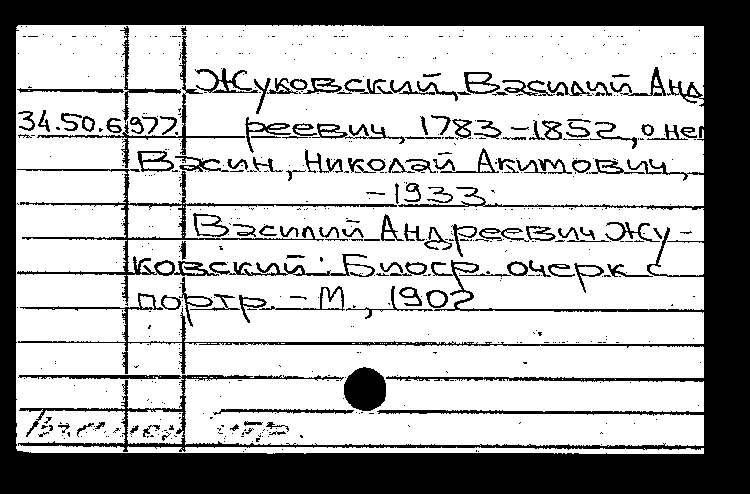 Жуковский, Василий Анд
34.50.6.977. реевич, 1783-1852, о нем
Васин, Николай Акимович,
-1933.
Василий Андреевич Жу-
ковский: Биогр. очерк с
портр. - М., 1902